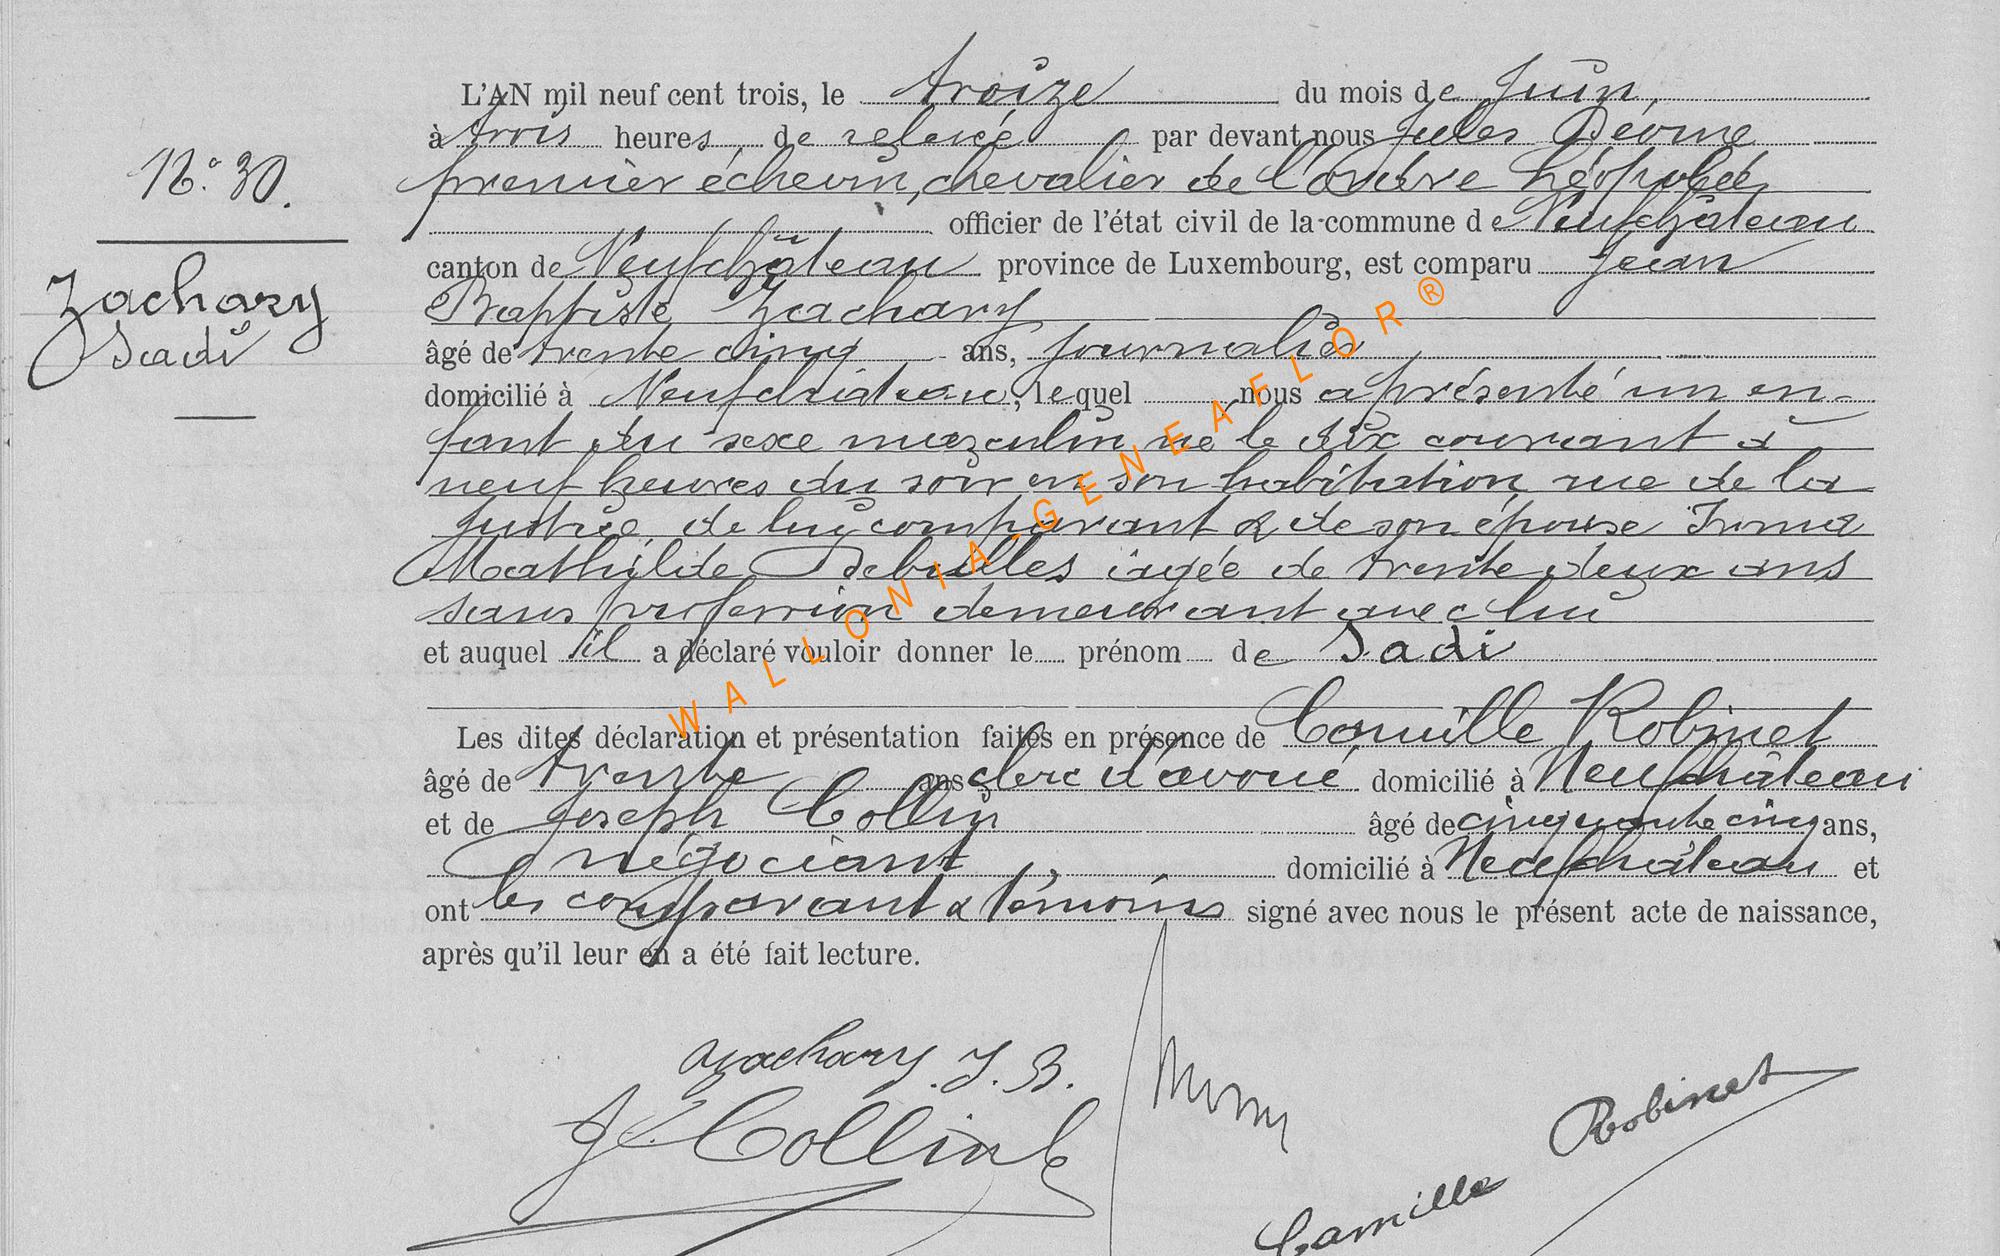 L'AN mil neuf cent trois, le treize du mois de Juin,
à trois heures de relevée par devant nous Jules
N° 30.
premier échevin, chevalier de l'ordre Léopold,
officier de l'état civil de la commune de Neufchâteau
canton de Neufchâteau province de Luxembourg, est comparu Jean
Zachary
Baptiste Zachary
Sadi
âgé de trente cinq ans, journalier
domicilié à Neufchâteau, lequel nous a présenté un en-
fant du sexe masculin né le dix courant à
neuf heures du soir en son habitation rue de la
justice, de lui comparant & de son épouse Irma
Mathilde âgée de trente deux ans
sans profession demeurant avec lui
et auquel il a déclaré vouloir donner le prénom de Sadi
Les dites déclaration et présentation faites en présence de Camille Robinet
âgé de trente ans clerc d'avoué domicilié à Neufchâteau
et de Joseph Collin âgé de cinquante cinq ans,
négociant, domicilié à Neufchâteau et
ont les comparant & témoins signé avec nous le présent acte de naissance,
après qu'il leur en a été fait lecture.
WALLONIA-GENEAFLOR®
Zachary. J. B.
J Collin
Camille Robinet